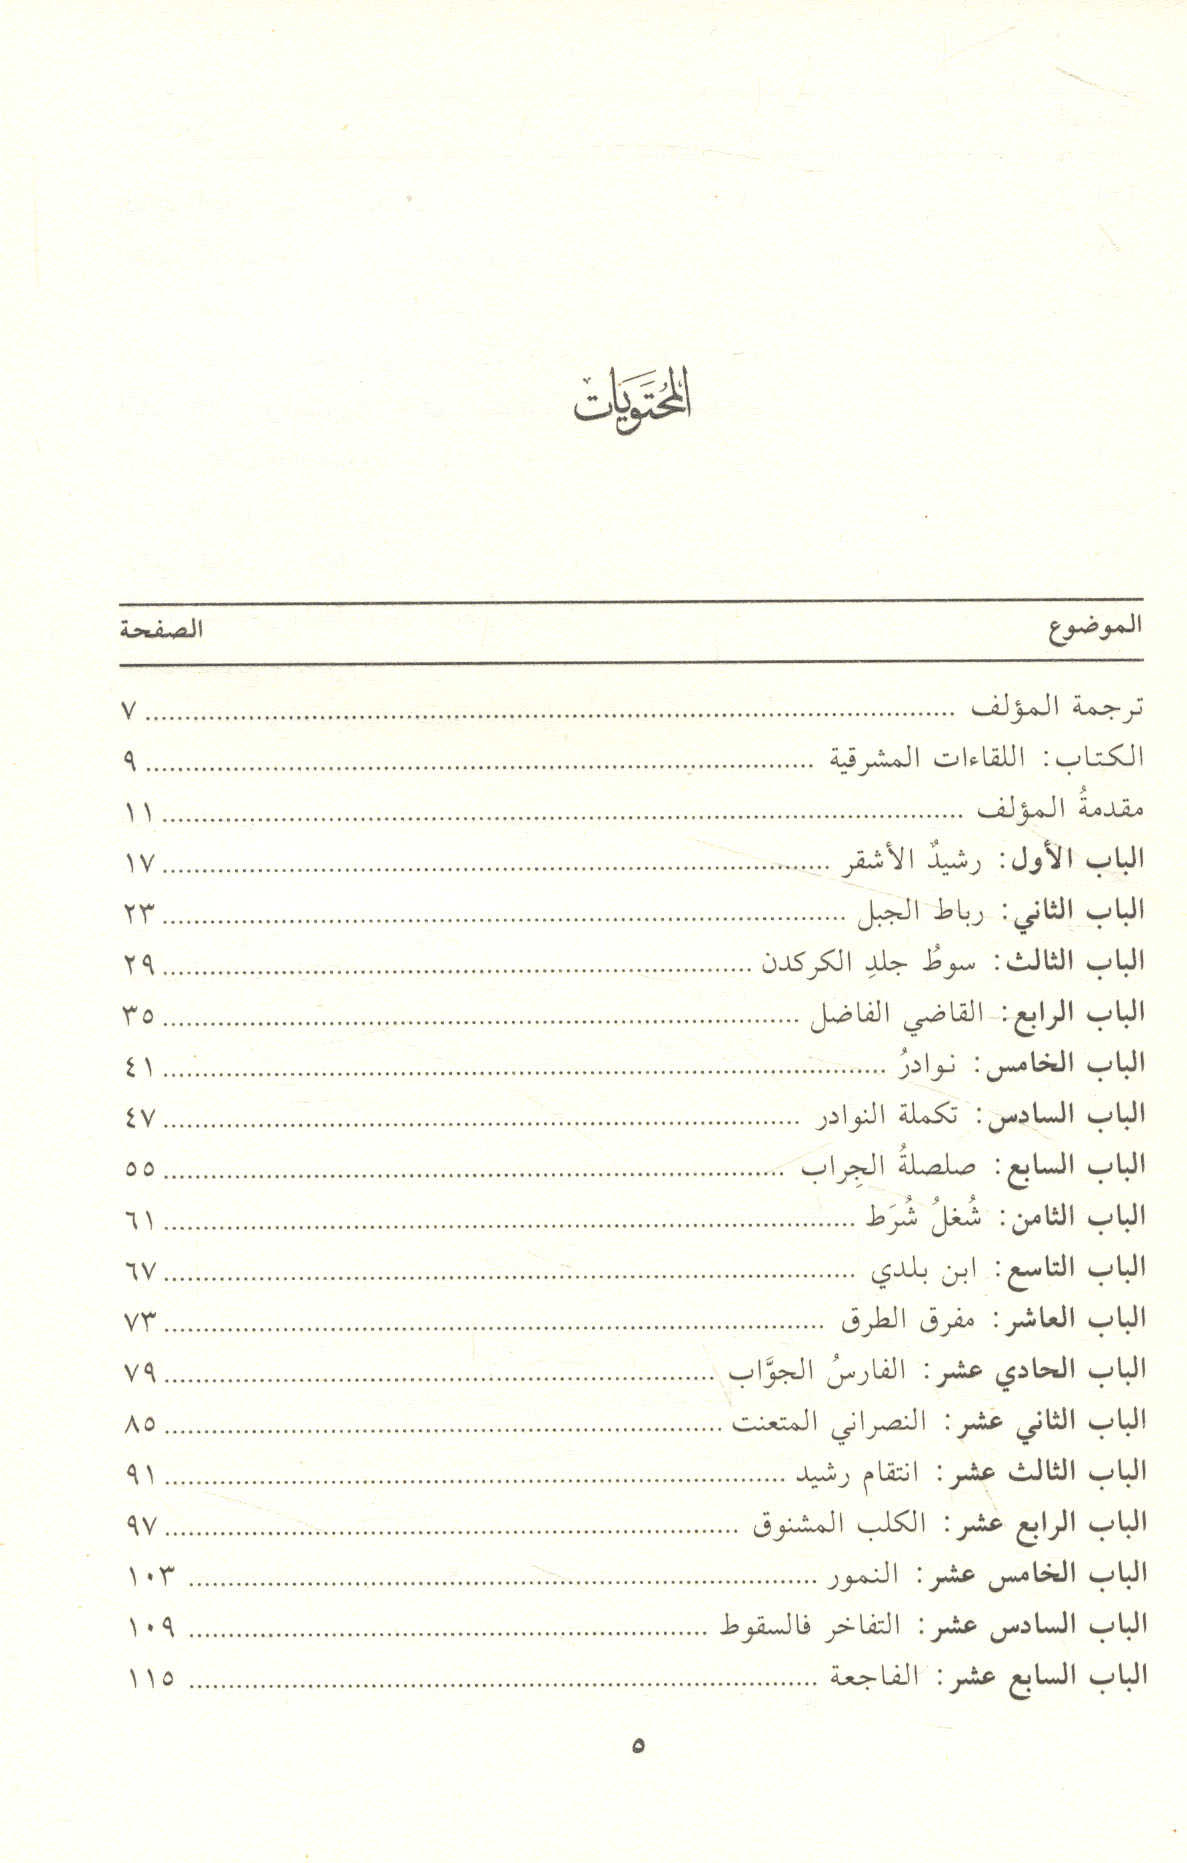 المُحتَوَيات
الموضوع الصفحة
ترجمة المؤلف ........ ٧
الكتاب: اللقاءات المشرقية ........ ٩
مقدمةُ المؤلف ........ ١١
الباب الأول: رشيدٌ الأشقر ........ ١٧
الباب الثاني: رباط الجبل ........ ٢٣
الباب الثالث: سوطُ جلدِ الكركدن ........ ٢٩
الباب الرابع: القاضي الفاضل ........ ٣٥
الباب الخامس: نوادرُ ........ ٤١
الباب السادس: تكملة النوادر ........ ٤٧
الباب السابع: صلصلةُ الجِراب ........ ٥٥
الباب الثامن: شُغلُ شُرَط ........ ٦١
الباب التاسع: ابن بلدي ........ ٦٧
الباب العاشر: مفرق الطرق ........ ٧٣
الباب الحادي عشر: الفارسُ الجوَّاب ........ ٧٩
الباب الثاني عشر: النصراني المتعنت ........ ٨٥
الباب الثالث عشر: انتقام رشيد ........ ٩١
الباب الرابع عشر: الكلب المشنوق ........ ٩٧
الباب الخامس عشر: النمور ........ ١٠٣
الباب السادس عشر: التفاخر فالسقوط ........ ١٠٩
الباب السابع عشر: الفاجعة ........ ١١٥
٥